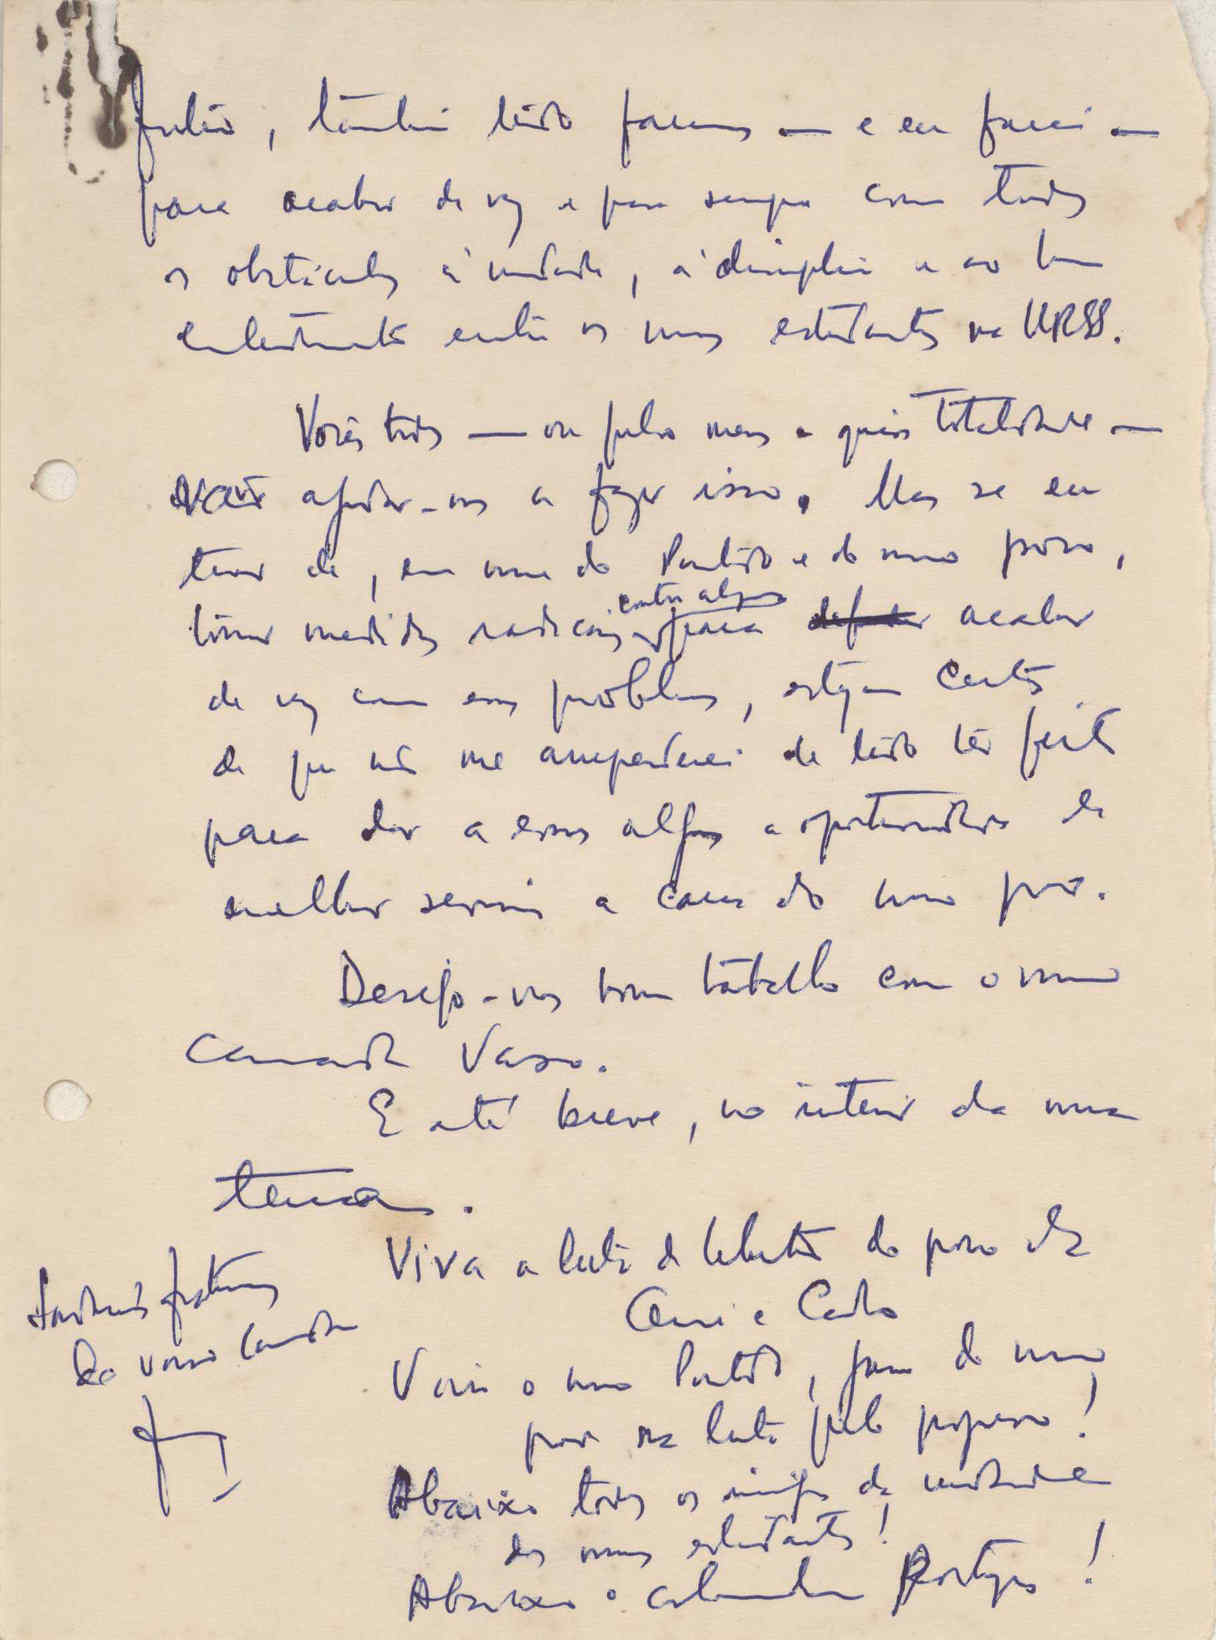 , também tudo faremos — e eu farei —
para acabar de vez e para sempre com todos
os obstáculos à unidade, à disciplina e ao bom
entendimento entre os nossos estudantes na URSS.
Vocês todos — ou pelo menos a quase totalidade —
ajudar-nos a fazer isso. Mas se eu
tiver de, em nome do Partido e do nosso povo,
tomar medidas radicais contra alguns para acabar
de vez com esses problemas, estejam certos
de que não me arrependerei de tudo ter feito
para dar a esses alguns a oportunidade de
melhor servir a causa do nosso povo.
Desejo-vos bom trabalho com o nosso
camarada Vasco.
E até breve, no interior da nossa
terra.
Viva a luta de libertação do povo da
Guiné e Cabo
Viva o nosso Partido, força do nosso
povo na luta pelo progresso!
Abaixo todos os inimigos da unidade
dos nossos estudantes!
Abaixo o colonialismo Português!
Saudações fraternais
do vosso camarada